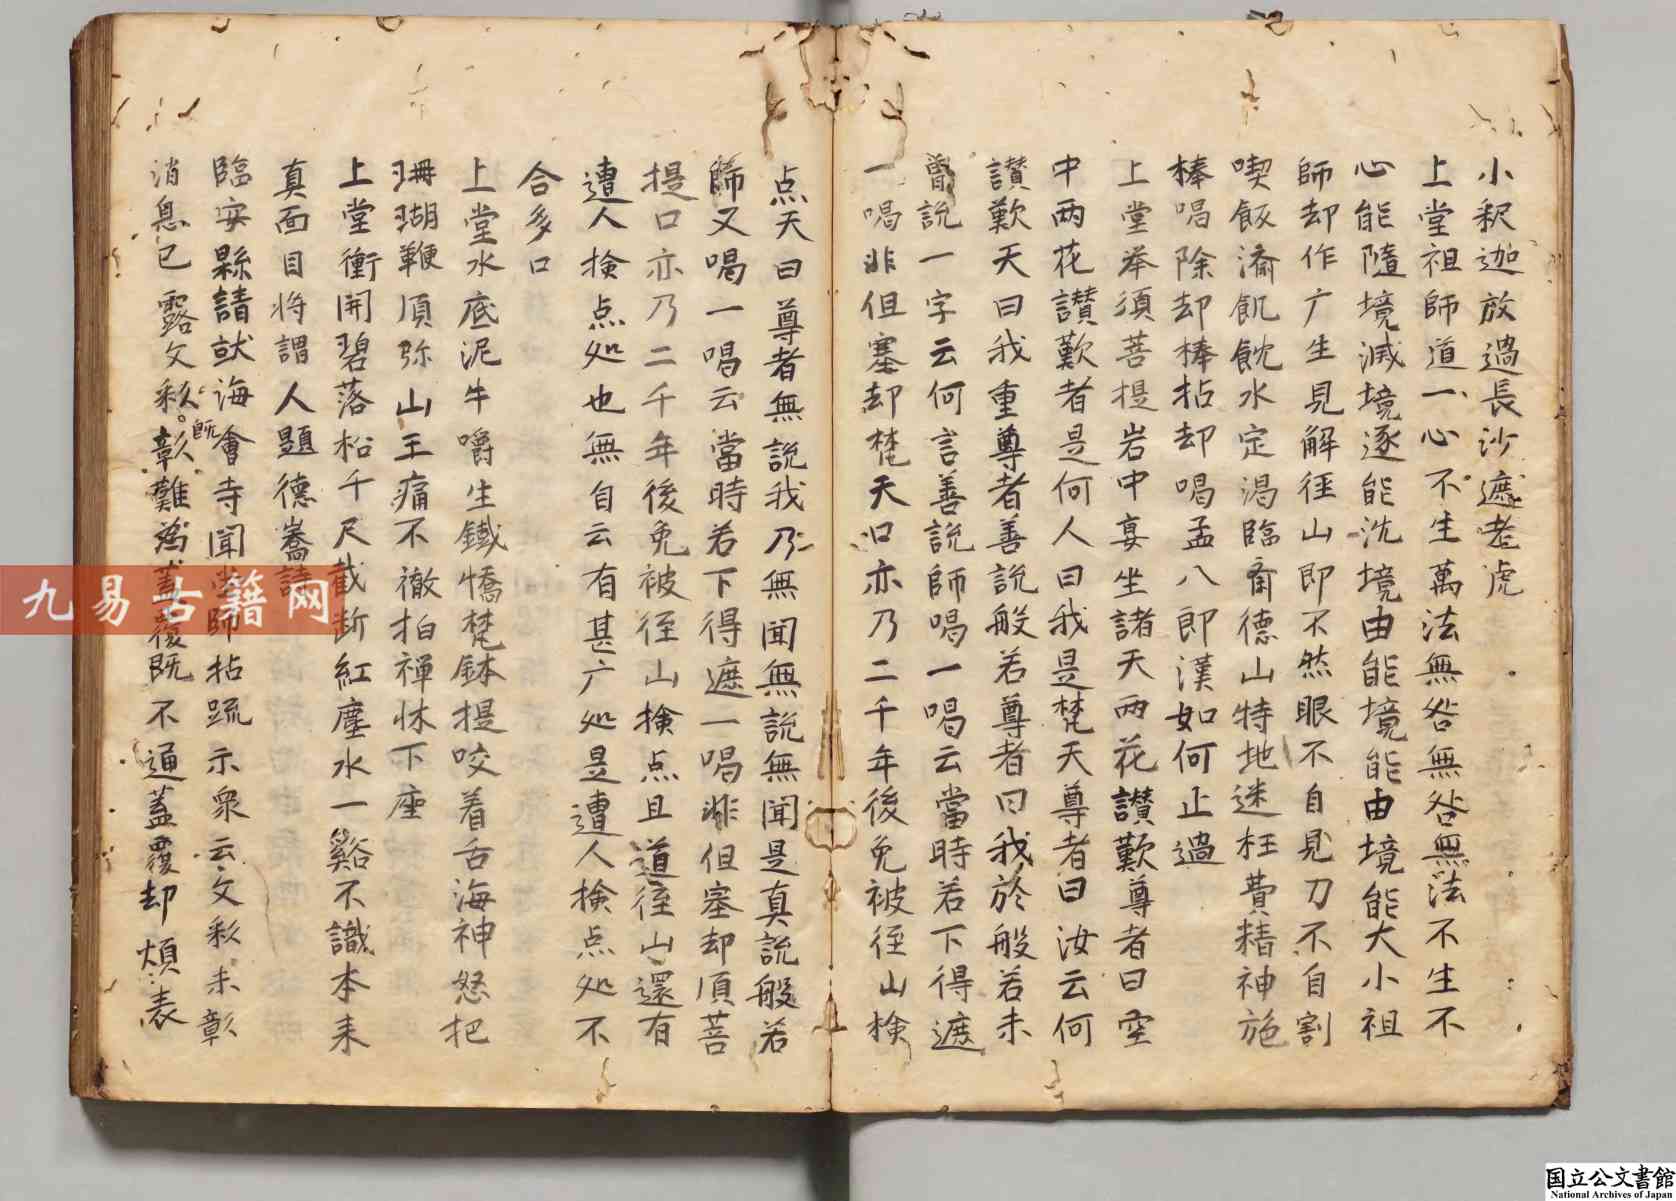 小釈迦放過長沙遮老虎
上堂祖師道一心不生萬法無咎無咎無法不生不
心能隨境滅境逐能沈境由能境能由境能大小祖
師却作广生見解徑山即不然眼不自見刀不自割
喫飯濟飢飲水定渴臨斉德山特地迷枉費精神施
棒喝除却棒拈却喝孟八郎漢如何止過
上堂举須菩提岩中宴坐諸天雨花讃歎尊者曰空
中雨花讃歎者是何人曰我是梵天尊者曰汝云何
讃歎天曰我重尊者善說般若尊者曰我於般若未
曽說一字云何言善說師喝一喝云當時若下得遮
一喝非但塞却梵天口亦乃二千年後免被徑山検
点天曰尊者無說我乃無聞無說無聞是真說般若
師又喝一喝云當時若下得遮一喝非但塞却須菩
提口亦乃二千年後免被徑山検点且道徑山還有
遭人検点処也無自云有甚广処是遭人検点処不
合多口
上堂水底泥牛嚼生鐵憍梵鉢提咬着舌海神怒把
珊瑚鞭須弥山王痛不徹拍禅牀下座
上堂衝開碧落松千尺截断紅塵水一谿不識本来
真面目将謂人題德嵩詩
臨安縣請就海會寺開堂師拈疏示衆云文彩未彰
消息已露文彩。既彰難為蓋覆既不通蓋覆却煩表
九易古籍网
国立公文書館
National Archives of Japan